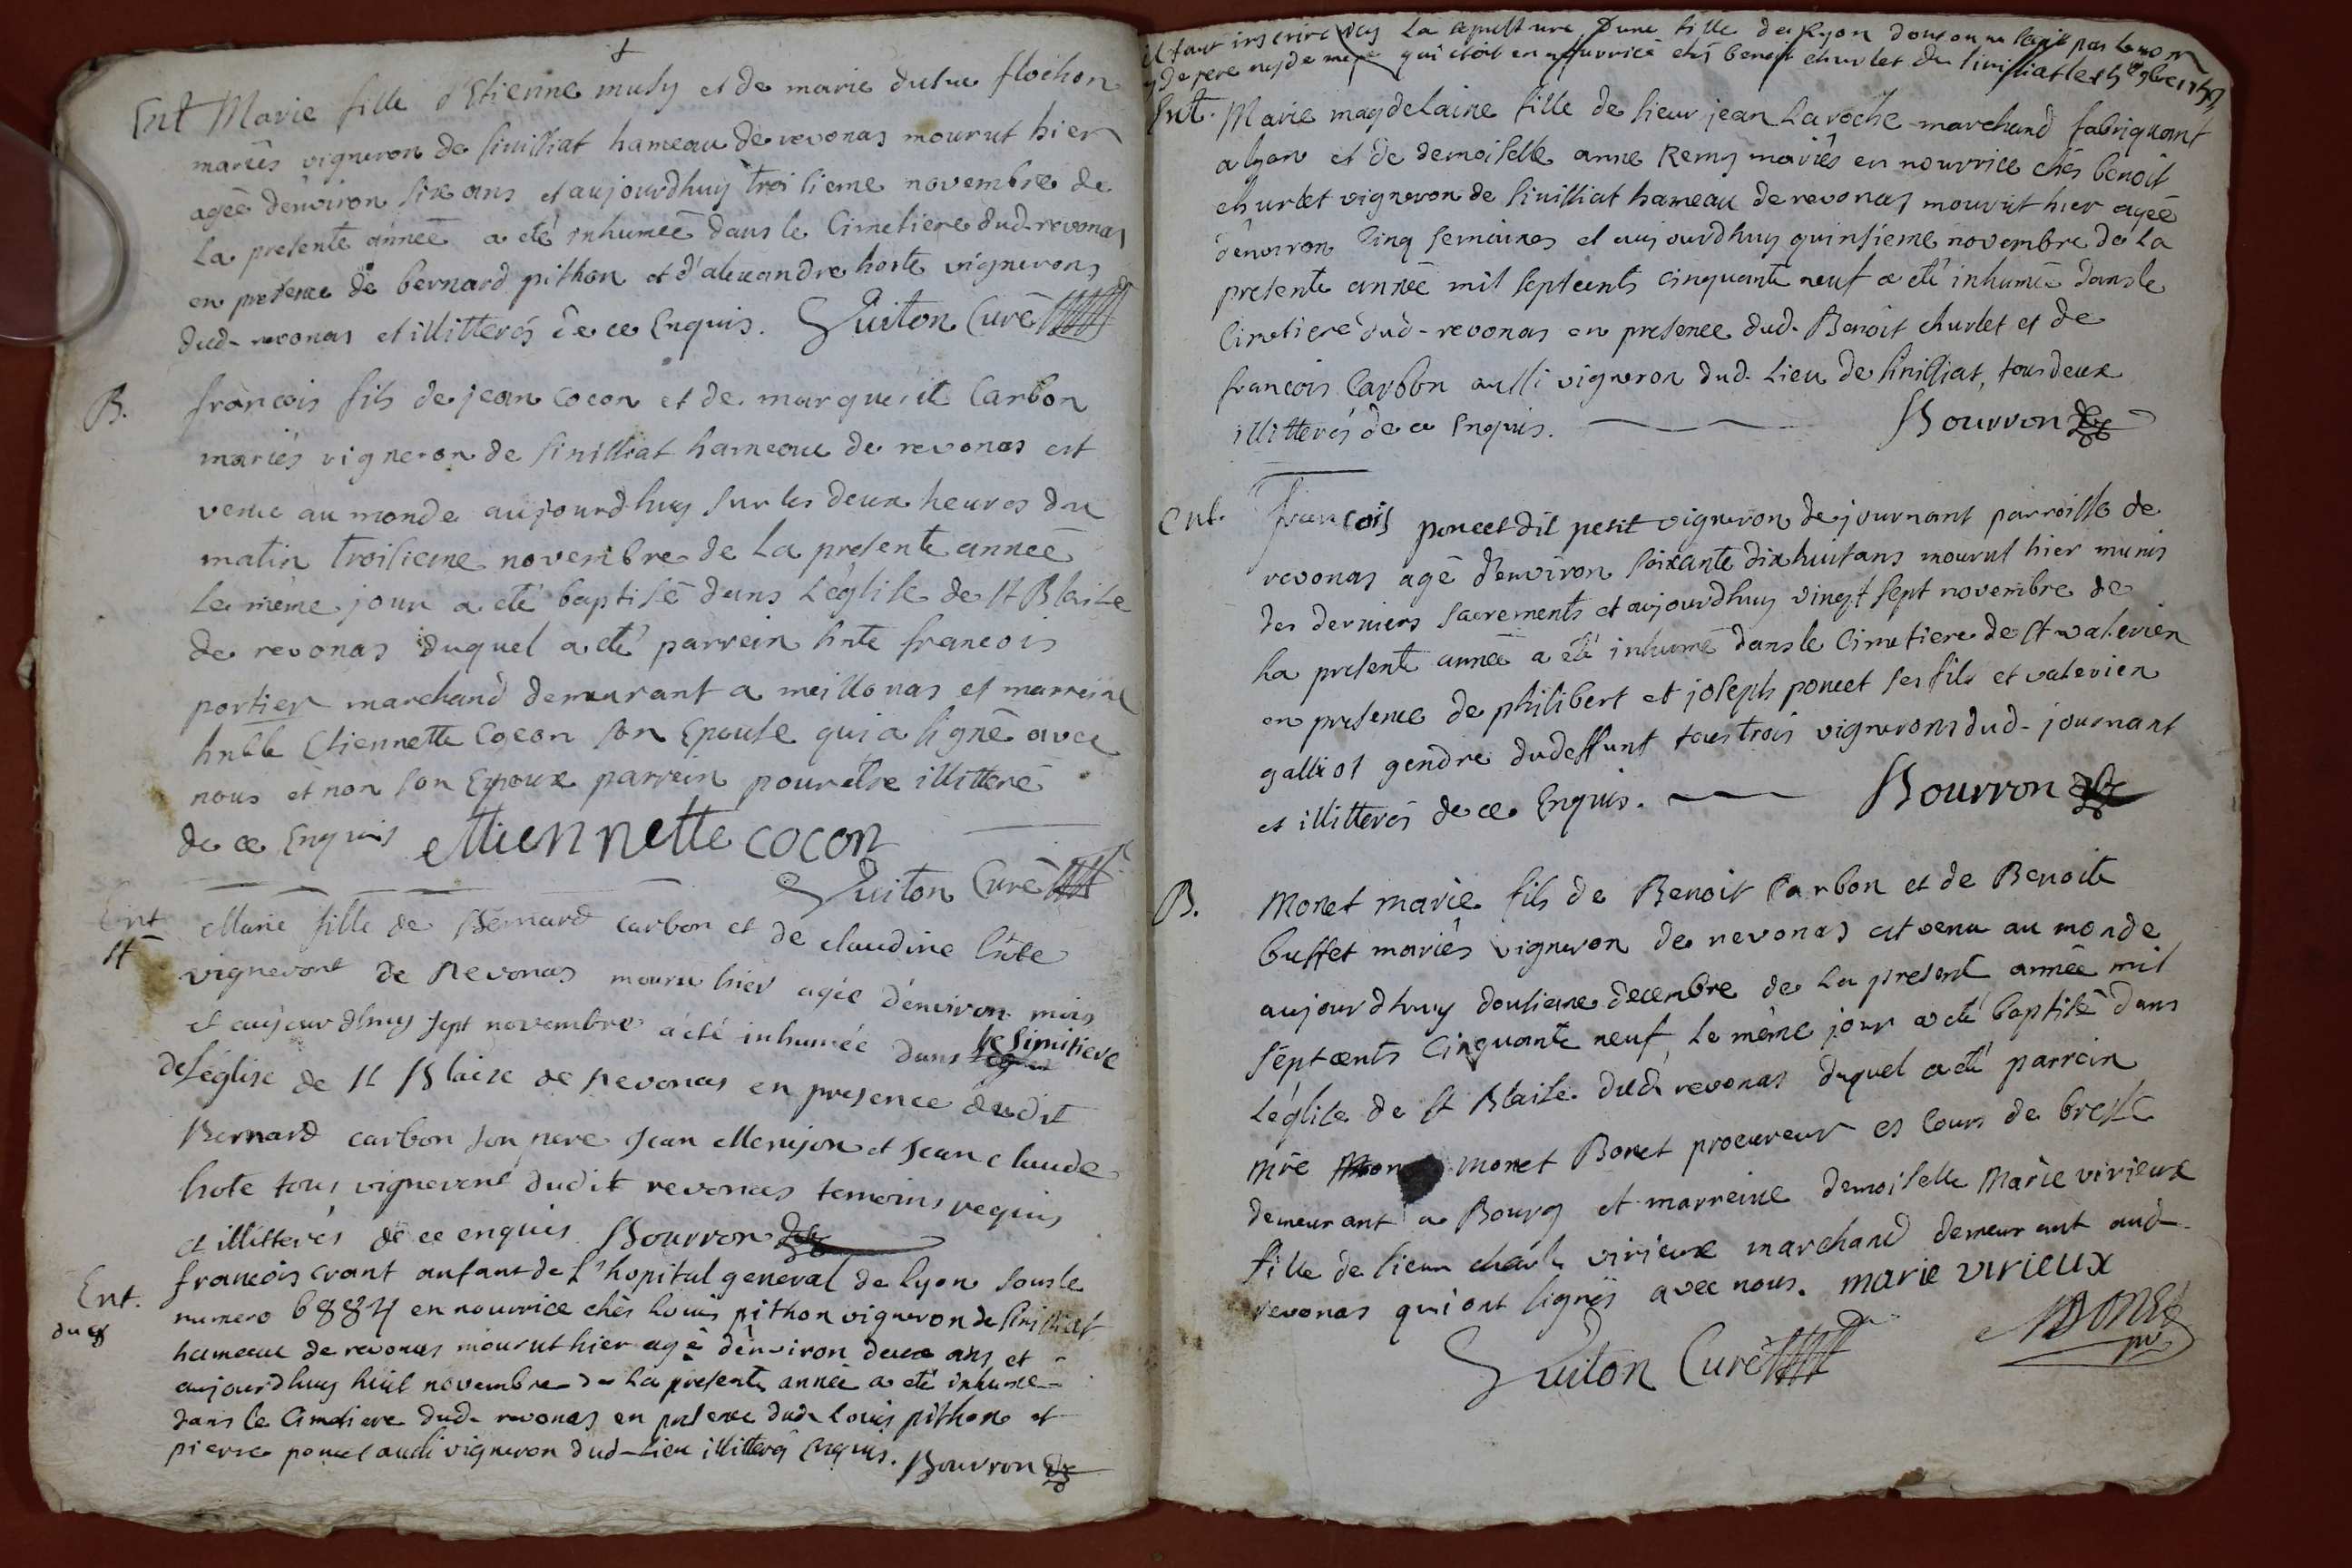 Ent Marie fille d'Etienne musy et de marie dutue flochon
mariés vigneron de sinissiat hameau de revonas mourut hier
agée d'environ six ans et aujourdhuy troisieme novembre de
la presente année a eté inhumée dans le Cimetiere dud-revonas
en presence de bernard pithon et d'alexandre hoste vignerons
dud-revonas et illitterés de ce Enquis. Guiton Curé
B. françois fils de jean cocon et de marguerit Carbon
mariés vigneron de sinissiat hameau de revonas est
venu au monde aujourdhuy sur les deux heures du
matin troisieme novembre de la presente année
le même jour a eté baptisé dans l'église de St Blaise
de revonas duquel a eté parrein hnte francois
portier marchand demeurant a meillonas et marreine
hnble Etiennette Cocon son Epouse qui a signé avec
nous et non son Epoux parrein pour être illitteré
de ce Enquis ettiennette cocon
Guiton Curé
Ent Marie fille de Bernard carbon et de claudine hôte
vigneront de Revonas mouru hier agée d'environ mois
et aujourdhuy sept novembre a été inhumée dans le simitiere
de l'église de St Blaise de revonas en presence dudit
Bernard carbon son pere Jean Merujon et Jean claude
hote tous vigneront dudit revonas temoins requis
et illitterés de ce enquis Bourron
Ent. francois crant anfant de l'hopital general de lyon sous le
numero 6884 en nourrice chés Louis pithon vigneron de sinissiat
du 8 hameau de revonas mourut hier agé d'environ deux ans et
aujourdhuy huit novembre de la presente année a eté inhumé
dans le Cimetiere dud-revonas en presence dud-louis pithon et
pierre poncet aussi vigneron dud-lieu illitterés Enquis. Bourron
il faut inscrire icy la sepulture d'une fille de Lyon dont on ne sçait pas le nom
ny de pere ny de mere qui étoit en nourrice chés benoit churlet de sinissiat le 15 9bre 1759
Ent. Marie magdelaine fille de sieur jean Laroche marchand fabriquant
a lyon et de demoiselle anne Remy mariés en nourrice chés benoit
churlet vigneron de sinissiat hameau de revonas mourut hier agée
d'environ Cinq semaines et aujourdhuy quinsieme novembre de la
presente année mil septcents cinquante neuf a eté inhumée dans le
Cimetiere dud-revonas en presence dud. Benoit churlet et de
francois Carbon aussi vigneron dud. Lieu de sinissiat, tous deux
illitterés de ce Enquis. Bourron
Ent. francois poncet dit petit vigneron de journant parroisse de
revonas agé d'environ soixante dix huit ans mourut hier munis
des derniers sacrements et aujourdhuy vingt sept novembre de
la presente année a eté inhumé dans le Cimetiere de St valerien
en presence de philibert et joseph poncet ses fils et valerien
galliot gendre dudeffunt tous trois vignerons dud-journant
et illitterés de ce Enquis. Bourron
B. Monet marie fils de Benoit Carbon et de Benoite
buffet mariés vigneron de revonas est venu au monde
aujourdhuy dousieme decembre de la presente année mil
septcents Cinquante neuf le même jour a eté baptisé dans
L'église de St Blaise dud. revonas duquel a eté parrein
mre monet Bonet procureur es Cours de bresse
demeurant a Bourg et marreine demoiselle Marie virieux
fille de sieur charle virieux marchand demeurant aud-
revonas qui ont signés avec nous. marie virieux
Guiton Curé MBONET